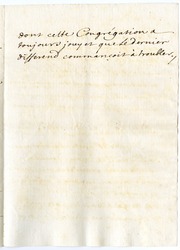 dont cette Congrégation a
toujours jouy et que le dernier
differend commançoit à troubler,